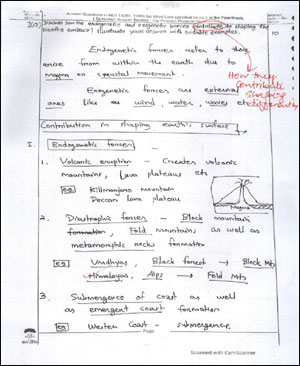 Answer Questions in NOT MORE THAN the Word Limit specified for each in the Parenthesis.
1(a) Discuss how the endogenetic and exogenetic forces contribute to shaping the
Earth's surface? Illustrate your answer with suitable examples. 10
Endogenetic forces refer to those
arise from within the earth due to
magma or crustal movement.
Exogenetic forces are external
ones like as wind, water, waves etc
How they
contribute
Surface
differently
Contribution in shaping earth's surface
I. Endogenetic forces -
1. Volcanic eruption - Creates volcanic
mountains, Lava plateaus etc
eg Killimanjaro mountain
Deccan lava plateau
Magma
2. Diastrophic forces - Block mountain
formation, Fold mountains as well as
metamorphic rocks formation
eg Vindhyas, Black forest → Block Mts
Himalayas, Alps → Fold Mts
3. Submergence of coast as well
as emergent coast formation
eg Western Coast - submergence
Page
Scanned with CamScanner